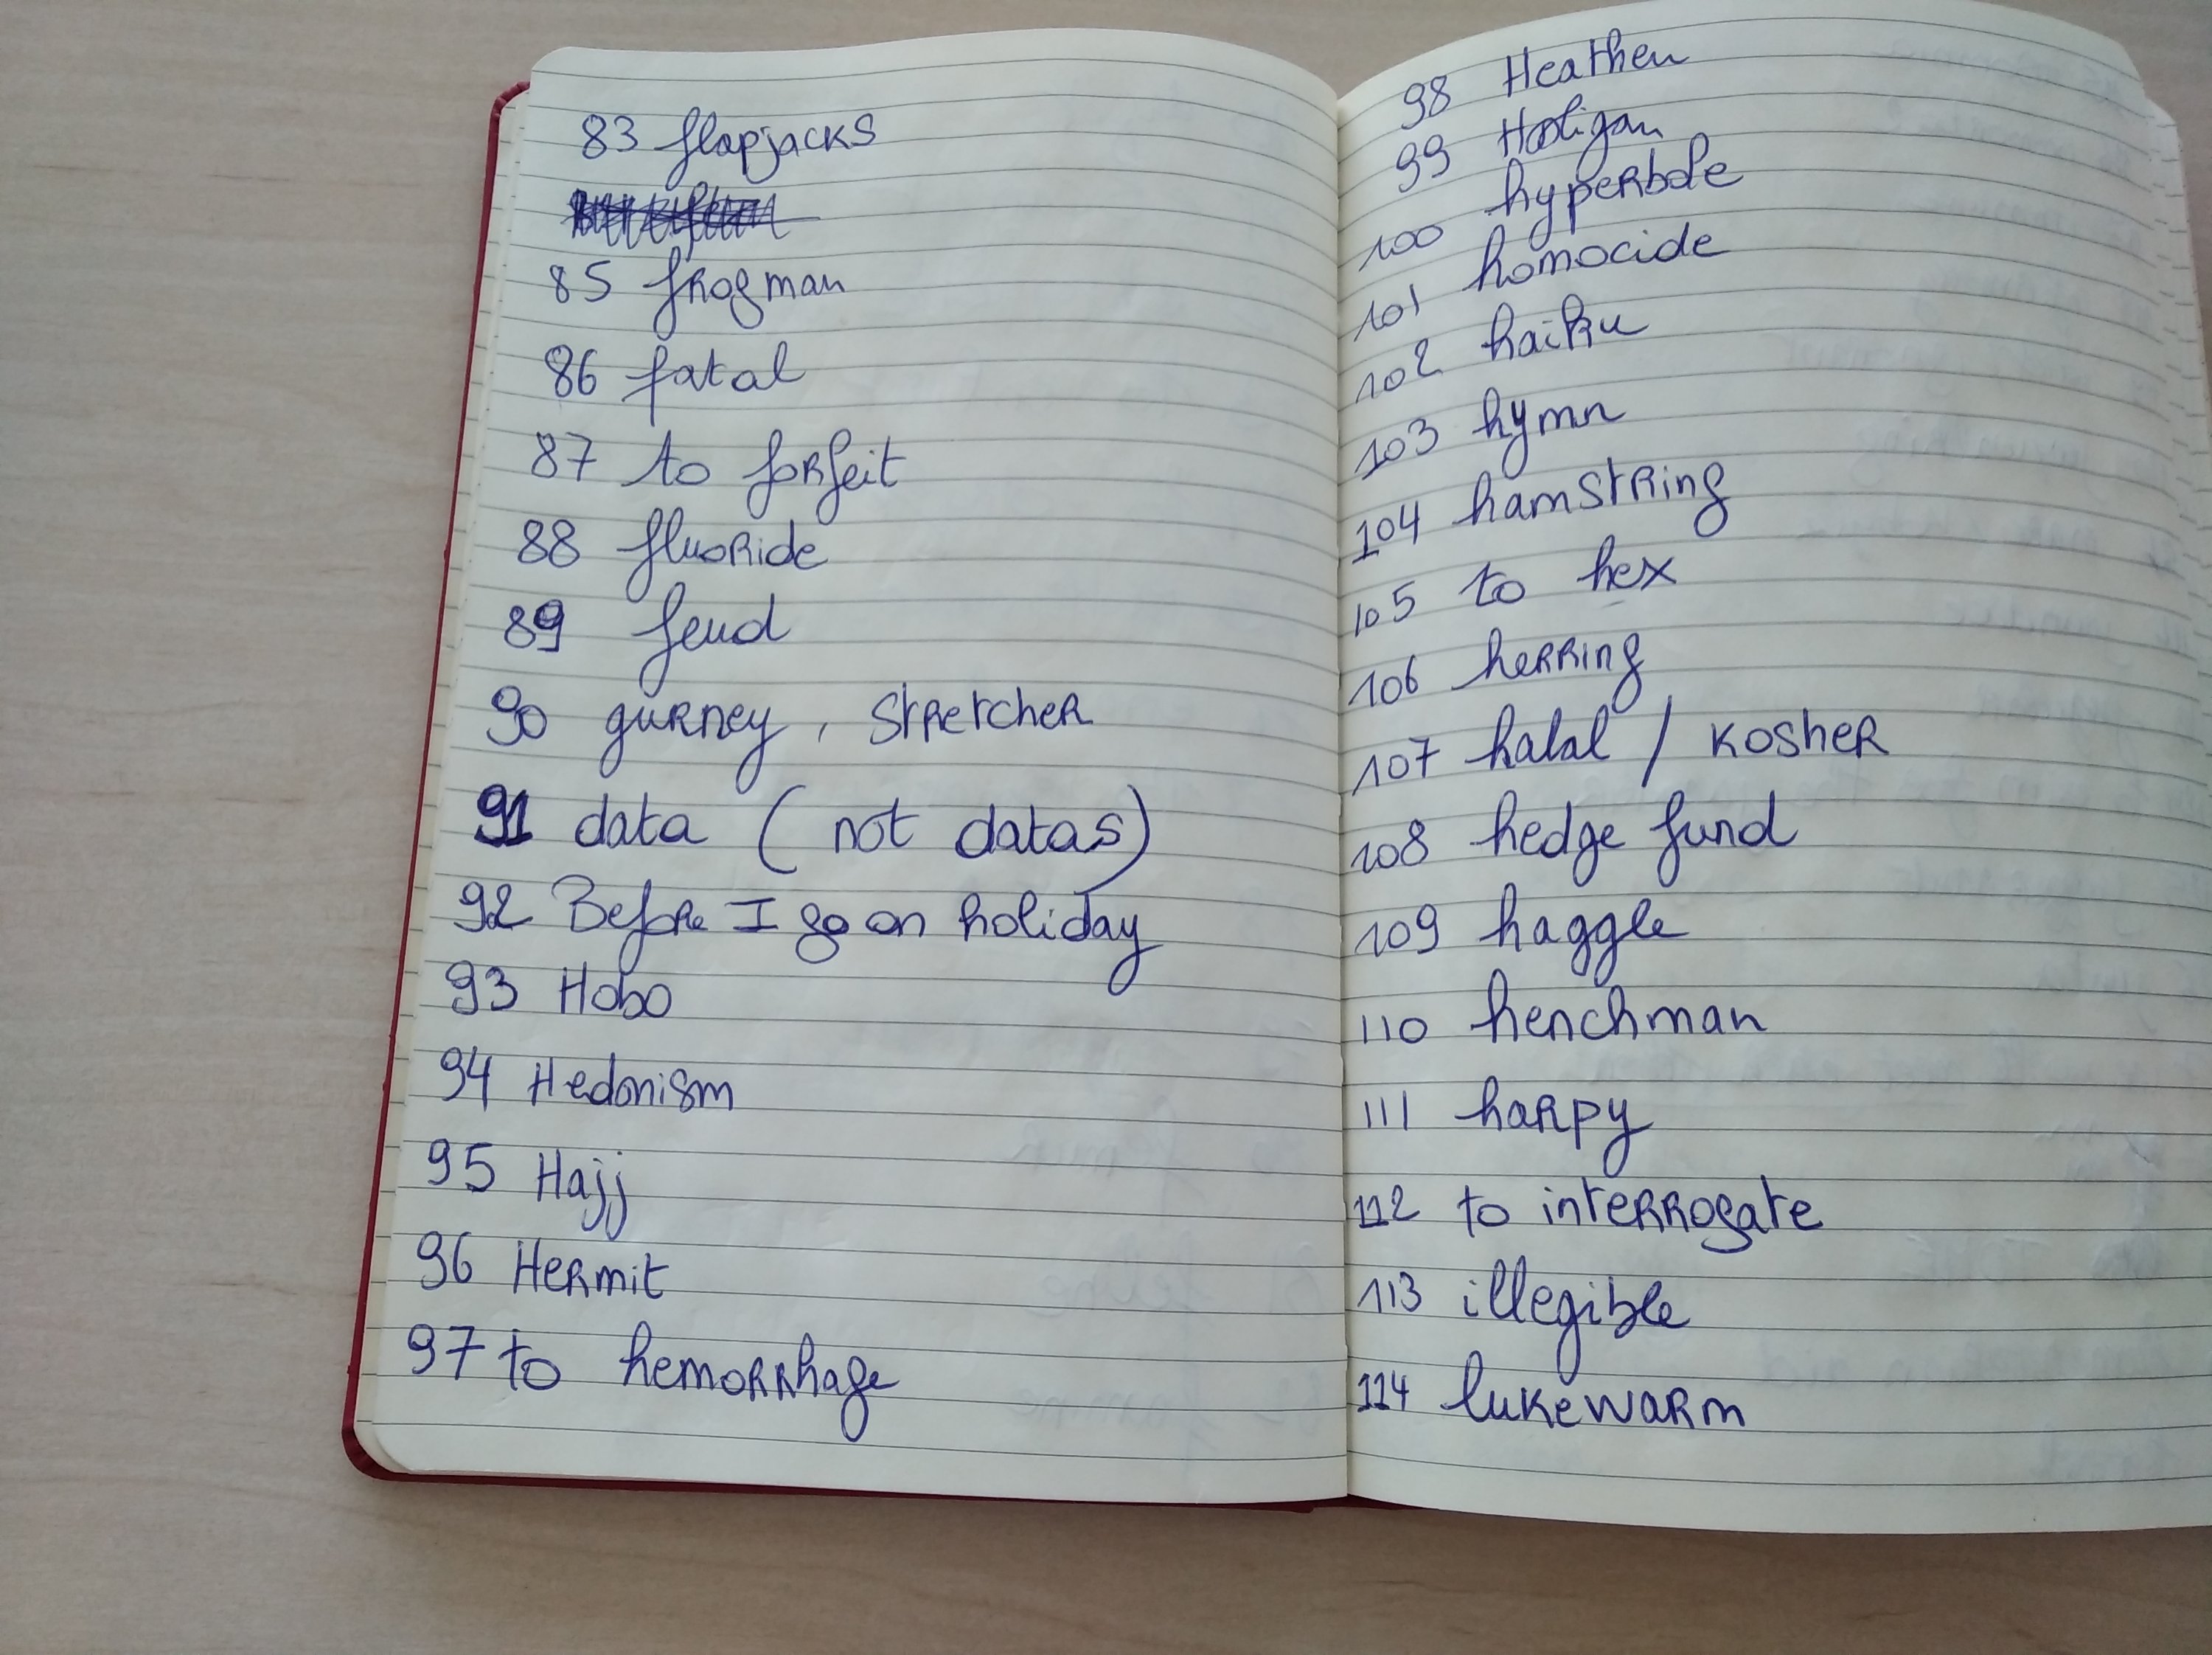 83 flapjacks
85 frogman
86 fatal
87 to forfeit
88 fluoride
89 feud
90 gurney, stretcher
91 data (not datas)
92 Before I go on holiday
93 Hobo
94 Hedonism
95 Hajj
96 Hermit
97 to hemorrhage
98 Heathen
99 Hooligan
100 hyperbole
101 homocide
102 haiku
103 hymn
104 hamstring
105 to hex
106 herring
107 halal / kosher
108 hedge fund
109 haggle
110 henchman
111 harpy
112 to interrogate
113 illegible
114 lukewarm